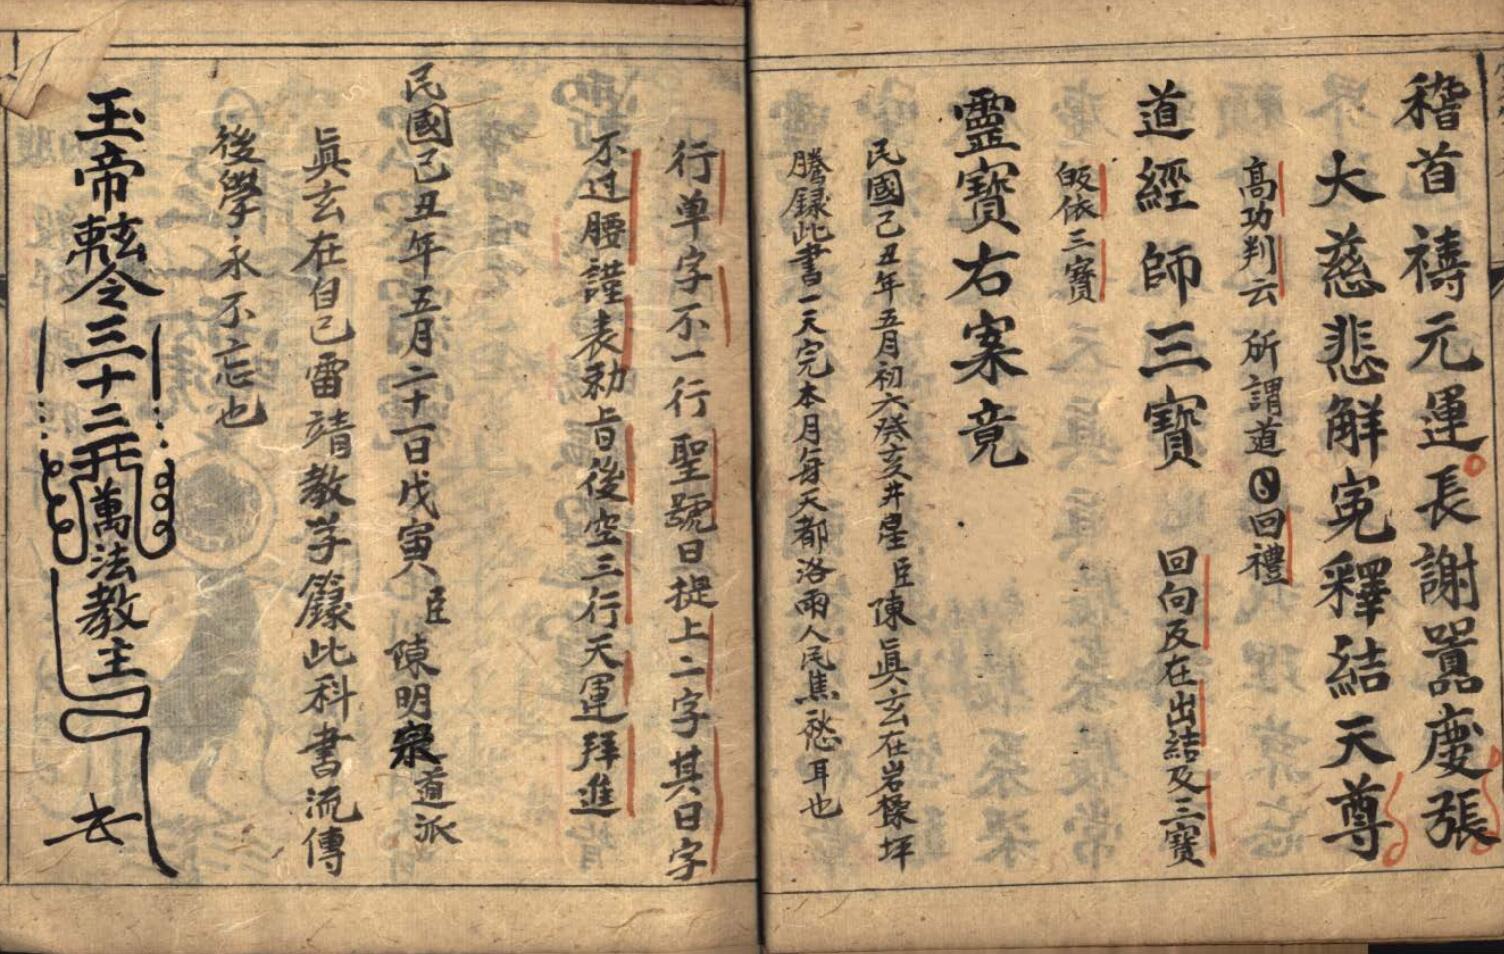 稽首禱元運長謝罯慶張
大慈悲解寃釋結天尊
高功判云 所謂道 回禮
道經師三寶 回向反在出結及三寶
皈依三寶
靈寳右案竟
民國己丑年五月初六癸亥井星臣陳眞玄在岩檬坪
謄録此書一天完本月每天都洛雨人民焦愁耳也
行单字不一行聖號日提上二字其日字
不过腰謹表勅旨後空三行天運拜進
民國己丑年五月二十一日戊寅臣陳明泉道派
眞玄在自己雷靖教学籙此科書流傳
後學永不忘也
玉帝敕令三十三天萬法教主